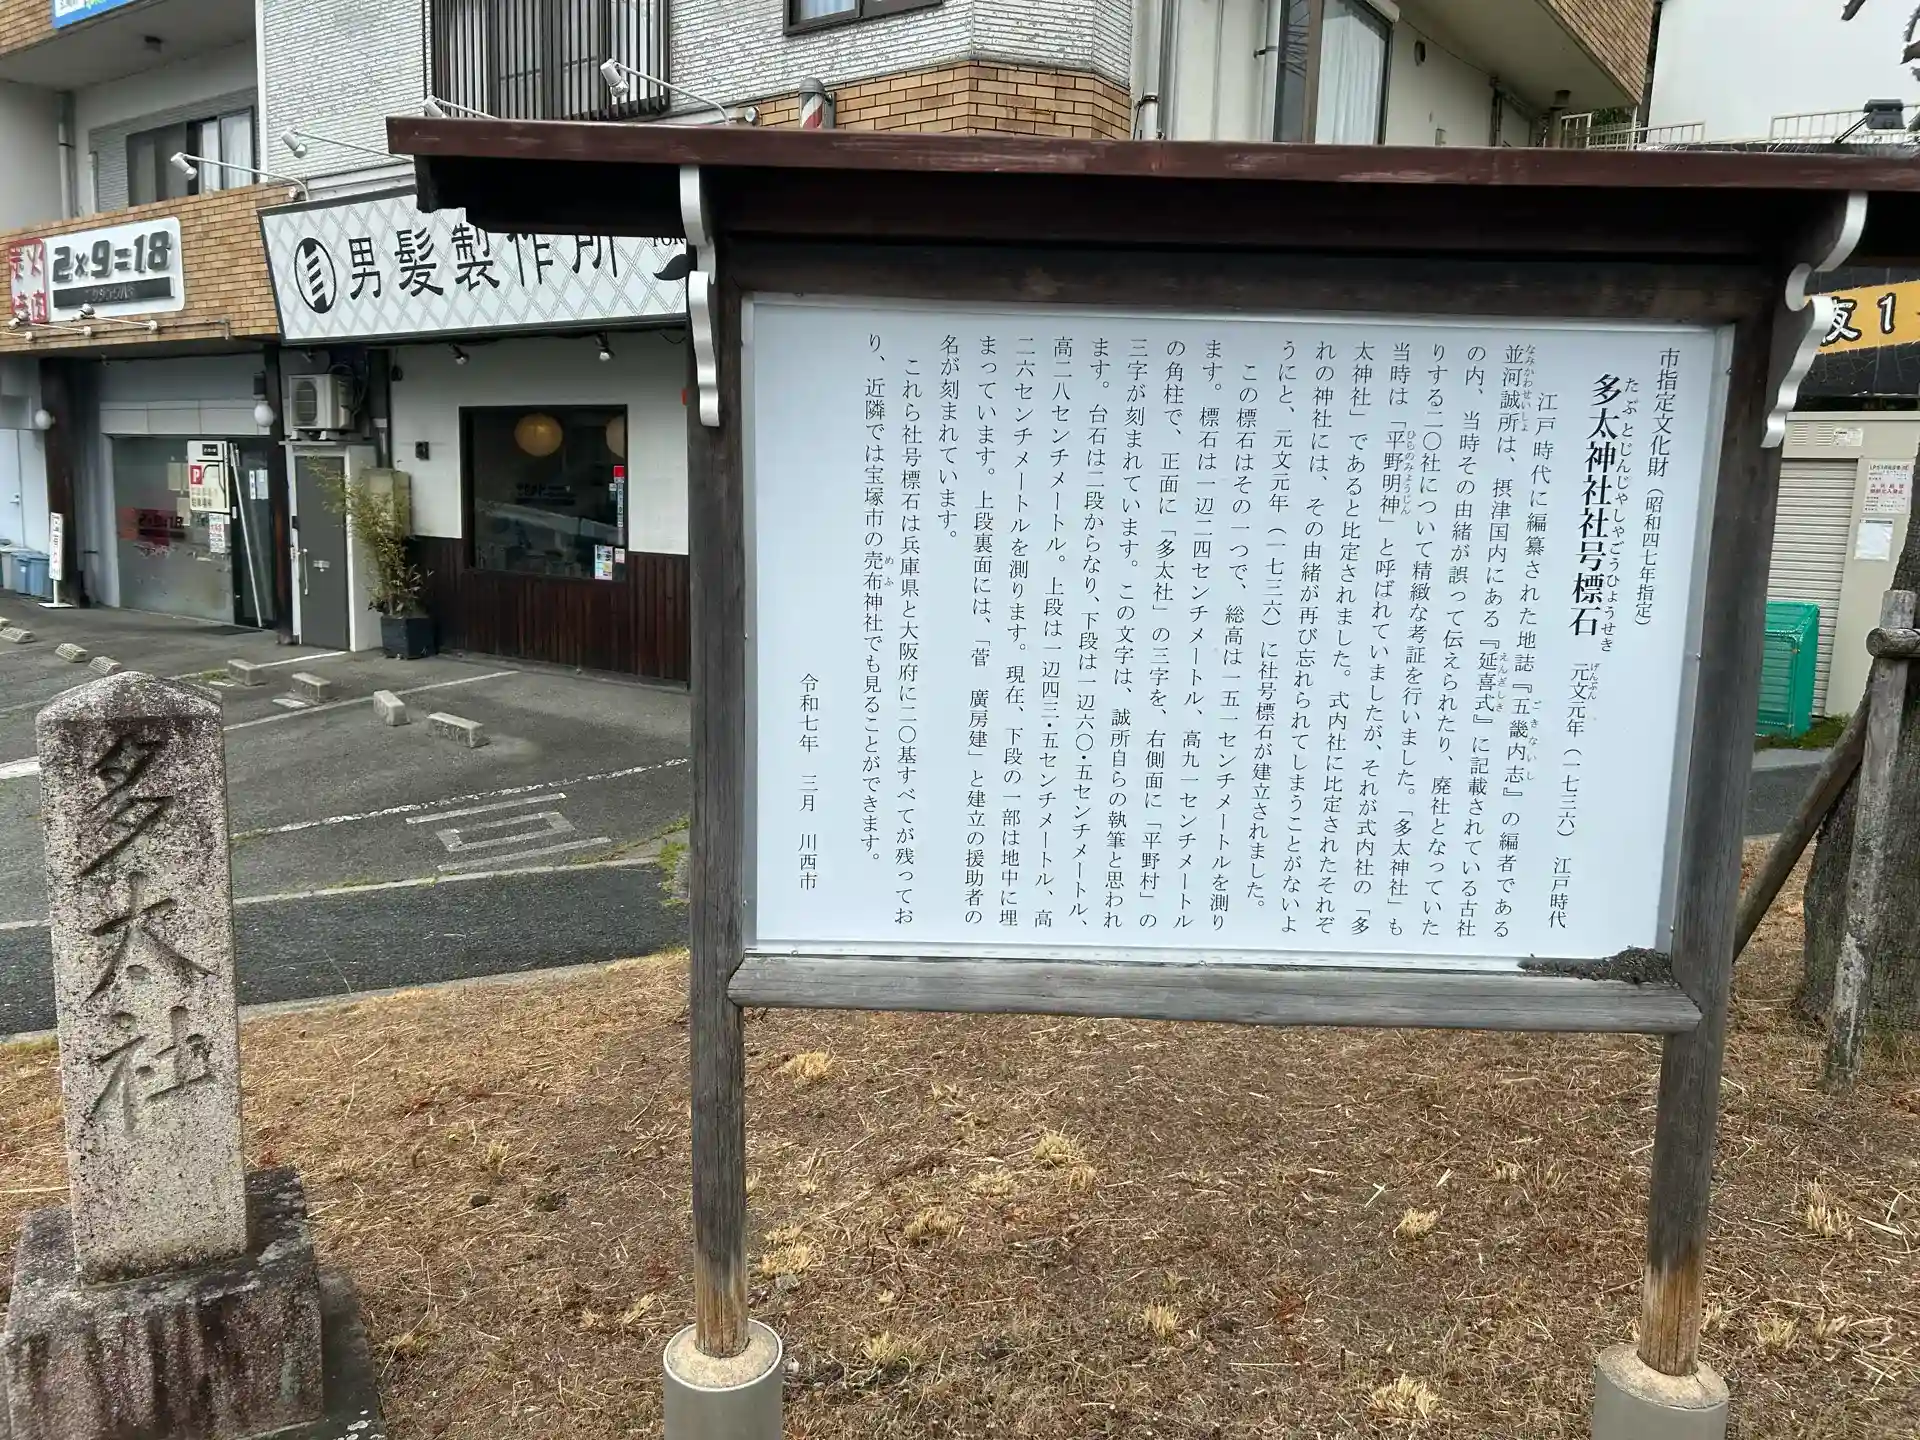 市指定文化財（昭和四七年指定）
たぶとじんじゃしゃごうひょうせき
多太神社社号標石
げんぶん
元文元年（一七三六）　江戸時代
江戸時代に編纂された地誌『五畿内志』の編者である
ごきないし
並河誠所は、摂津国内にある『延喜式』に記載されている古社
なみかわせいしょ
えんぎしき
の内、当時その由緒が誤って伝えられたり、廃社となっていた
りする二〇社について精緻な考証を行いました。「多太神社」も
当時は「平野明神」と呼ばれていましたが、それが式内社の「多
ひらのみょうじん
太神社」であると比定されました。式内社に比定されたそれぞ
れの神社には、その由緒が再び忘れられてしまうことがないよ
うにと、元文元年（一七三六）に社号標石が建立されました。
この標石はその一つで、総高は一五一センチメートルを測り
ます。標石は一辺二四センチメートル、高九一センチメートル
の角柱で、正面に「多太社」の三字を、右側面に「平野村」の
三字が刻まれています。この文字は、誠所自らの執筆と思われ
ます。台石は二段からなり、下段は一辺六〇・五センチメートル、
高二八センチメートル。上段は一辺四三・五センチメートル、高
二六センチメートルを測ります。現在、下段の一部は地中に埋
まっています。上段裏面には、「菅　廣房建」と建立の援助者の
名が刻まれています。
これら社号標石は兵庫県と大阪府に二〇基すべてが残ってお
り、近隣では宝塚市の売布神社でも見ることができます。
めふ
令和七年　三月　川西市
多太社
男髪製作所
FOR
炭火
焼肉
2×9=18
2×9=18
P
夜1